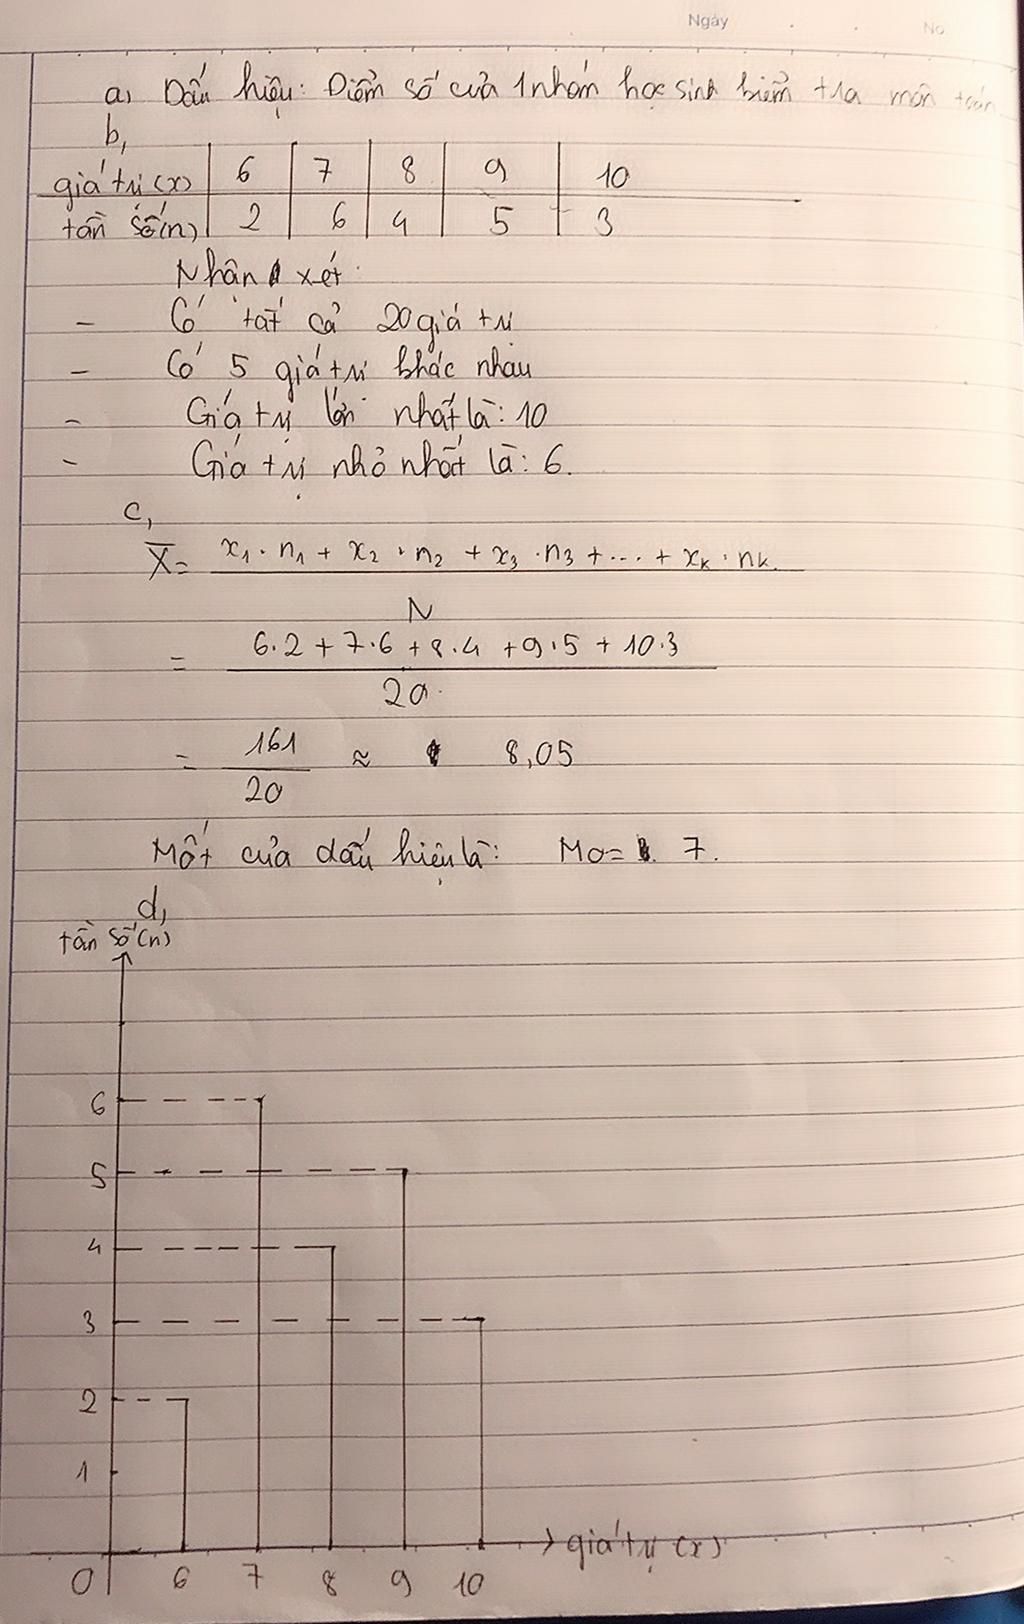 Ngày
No
a, Dấu hiệu: Điểm số của 1 nhóm học sinh kiểm tra môn toán
b,
giá trị (x) 6 7 8 9 10
tần số (n) 2 6 4 5 3
Nhận xét:
- Có tất cả 20 giá trị
- Có 5 giá trị khác nhau
- Giá trị lớn nhất là: 10
- Giá trị nhỏ nhất là: 6.
c,
X̄ = x₁ · n₁ + x₂ · n₂ + x₃ · n₃ + ... + xₖ · nₖ
N
= 6.2 + 7.6 + 8.4 + 9.5 + 10.3
20
= 161 ≈ 8,05
20
Mốt của dấu hiệu là: Mo = 7.
d,
tần số (n)
6
5
4
3
2
1
0 6 7 8 9 10 giá trị (x)